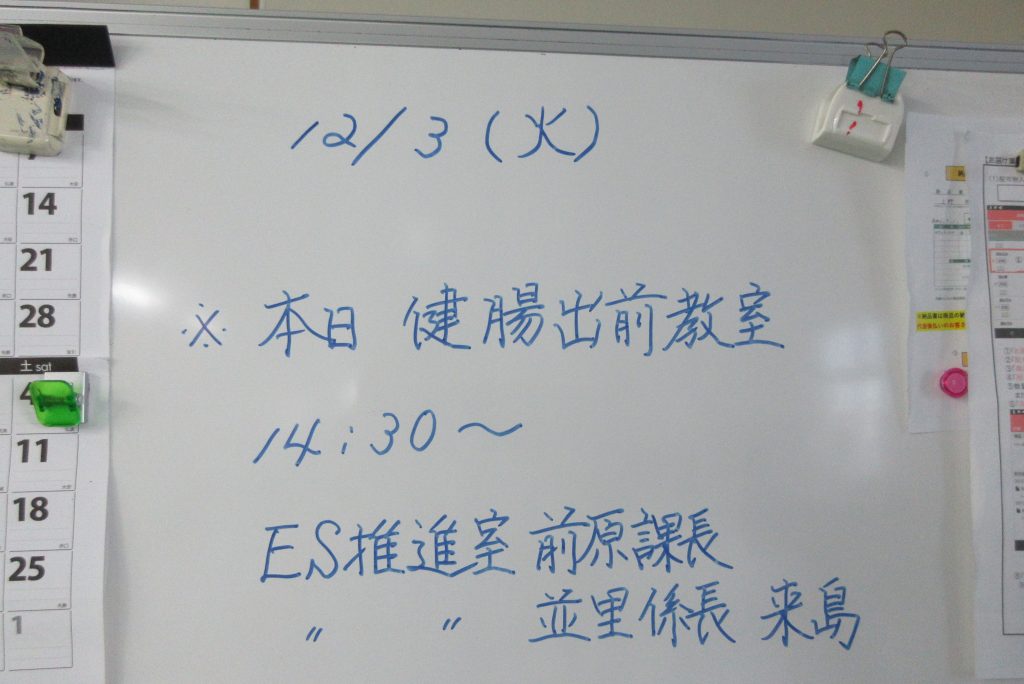 12/3 (火)
※ 本日 健腸出前教室
14:30～
ES推進室 前原課長
〃 〃 並里係長 来島
14
21
28
土 sat
4
11
18
25
1